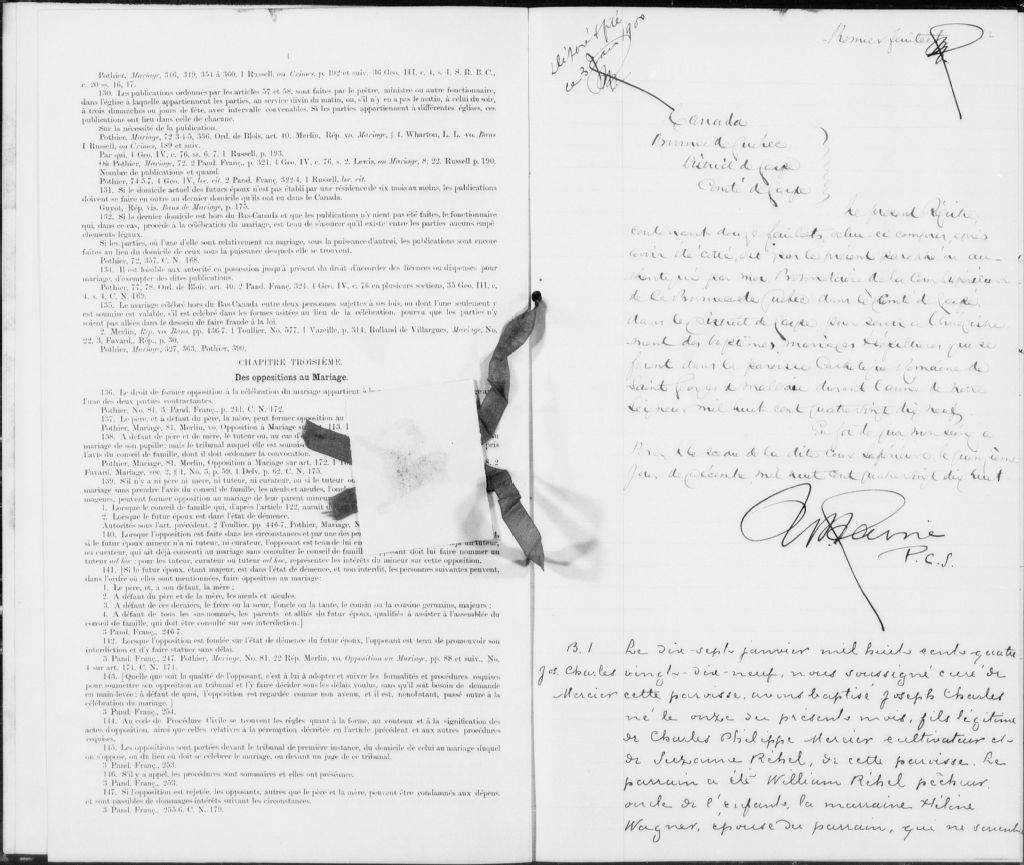 1
Pothier, Mariage, 346, 349, 354 à 360. 1 Russell, on Crimes, p. 192 et suiv. 36 Geo. III, c. 4, s. 1. S. R. B. C.,
c. 20 ss. 16, 17.
130. Les publications ordonnées par les articles 57 et 58, sont faites par le prêtre, ministre ou autre fonctionnaire,
dans l'église à laquelle appartiennent les parties, au service divin du matin, ou, s'il n'y en a pas le matin, à celui du soir,
à trois dimanches ou jours de fête, avec intervalle convenables. Si les parties appartiennent à différentes églises, ces
publications ont lieu dans celle de chacune.
Sur la nécessité de la publication.
Pothier, Mariage, 72 3-4-5, 356, Ord. de Blois, act. 40. Merlin, Rép. vo. Mariage, § 4. Wharton, L. L. vo. Bans
1 Russell, on Crimes, 189 et suiv.
Par qui, 4 Geo. IV, c. 76, ss. 6, 7. 1 Russell, p. 193.
Où Pothier, Mariage, 72. 2 Pand. Franç., p. 321. 4 Geo. IV, c. 76, s. 2. Lewis, on Mariage, 8, 22. Russell p. 190.
Nombre de publications et quand.
Pothier, 74-5-7. 4 Geo. IV, loc. cit. 2 Pand. Franç. 322-4. 1 Russell, loc. cit.
131. Si le domicile actuel des futurs époux n'est pas établi par une résidence de six mois au moins, les publications
doivent se faire en outre au dernier domicile qu'ils ont eu dans le Canada.
Guyot, Rép. vis. Bans de Mariage, p. 175.
132. Si la dernier domicile est hors du Bas-Canada et que les publications n'y aient pas été faites, le fonctionnaire
qui, dans ce cas, procède à la célébration du mariage, est tenu de s'assurer qu'il existe entre les parties aucuns empê-
chements légaux.
Si les parties, où l'une d'elle sont relativement au mariage, sous la puissance d'autrui, les publications sont encore
faites au lieu du domicile de ceux sous la puissance desquels elle se trouvent.
Pothier, 72, 357. C. N. 168.
134. Il est loisible aux autorité en possession jusqu'à présent du droit d'accorder des licences ou dispenses pour
mariage, d'exempter des dites publications.
Pothier, 77, 78. Ord. de Blois, art. 40. 2 Pand. Franç. 324. 4 Geo. IV, c. 76 en plusieurs sections, 35 Geo. III, c,
4, s. 4, C. N. 169.
135. Le mariage célébré hors du Bas-Canada entre deux personnes sujettes à ses lois, ou dont l'une seulement y
est soumise est valable, s'il est célébré dans les formes usitées au lieu de la célébration, pourvu que les parties n'y
soient pas allées dans le dessein de faire fraude à la loi.
2. Merlin, Rép. vo. Bans, pp. 436-7. 1 Toullier, No. 577, 1 Vazeille, p. 314. Rolland de Villargues, Mariage, No,
22, 3, Favard., Rép., p. 30.
Pothier, Mariage, 327, 363, Pothier, 390.
CHAPITRE TROISIÈME.
Des oppositions au Mariage.
136. Le droit de former opposition à la célébration du mariage appartient à
l'une des deux parties contractantes.
Pothier, No. 81. 3. Pand. Franç., p. 241. C. N. 172.
137. Le père, et à défaut du père, la mère, peut former opposition au
Pothier, Mariage, 81. Merlin, vo. Opposition à Mariage
138. A défaut de père et de mère, le tuteur ou, au cas
mariage de son pupille; mais le tribunal auquel elle est soumise
l'avis du conseil de famille, dont il doit ordonner la convocation.
Pothier, Mariage, 81. Merlin, Opposition à Mariage sur art. 172. 1
Favard, Mariage, sec. 2, § 1, No. 5, p. 59, 1 Delv. p. 62. C. N. 175.
139. S'il n'y a ni père ni mère, ni tuteur, ni curateur, ou si le tuteur
mariage sans prendre l'avis du conseil de famille, les aïeuls et aïeules,
mageurs, peuvent former opposition au mariage de leur parent mineur
1. Lorsque le conseil de famille qui, d'après l'article 122, aurait
2. Lorsque le futur époux est dans l'état de démence.
Autorités sous l'art. précédent. 2 Toullier, pp 446-7. Pothier, Mariage,
140. Lorsque l'opposition est faite dans les circonstances et par une des
si le futur époux mineur n'a ni tuteur, ni curateur, l'opposant est tenu de lui en
ou curateur, qui ait déjà consenti au mariage sans consulter le conseil de famille opposant doit lui faire nommer un
tuteur ad hoc; pour les tuteur, curateur ou tuteur ad hoc, représenter les intérêts du mineur sur cette opposition.
141. [Si le futur époux, étant majeur, est dans l'état de démence, et non interdit, les personnes suivantes peuvent,
dans l'ordre où elles sont mentionnées, faire opposition au mariage:
1. Le père, et, à son défaut, la mère;
2. A défaut du père et de la mère, les aïeuls et aïeules.
3. A défaut de ces derniers, le frère ou la sœur, l'oncle ou la tante, le cousin ou la cousine germains, majeurs;
4. A défaut de tous les sus-nommés, les parents et alliés du futur époux, qualifiés à assister à l'assemblée du
conseil de famille, qui doit être consulté sur son interdiction.]
3 Pand. Franç., 246-7.
142. Lorsque l'opposition est fondée sur l'état de démence du futur époux, l'opposant est tenu de promouvoir son
interdiction et d'y faire statuer sans délai.
3 Pand. Franç., 247. Pothier, Mariage, No. 81. 22 Rép. Merlin, vo. Opposition au Mariage, pp. 88 et suiv., No.
4 sur art. 174. C. N. 174.
143. [Quelle que soit la qualité de l'opposant, c'est à lui à adopter et suivre les formalités et procédures requises
pour soumettre son opposition au tribunal et l'y faire décider sous les délais voulus, sans qu'il soit besoin de demande
en main-levée; à défaut de quoi, l'opposition est regardée comme non avenue, et il est, nonobstant, passé outre à la
célébration du mariage.]
3 Pand. Franç., 254.
144. Au code de Procédure Civile se trouvent les règles quant à la forme, au contenu et à la signification des
actes d'opposition, ainsi que celles relatives à la péremption décrétée en l'article précédent et aux autres procédures
requises.
145. Les oppositions sont portées devant le tribunal de première instance, du domicile de celui au mariage duquel
on s'oppose, ou du lieu où doit se célébrer le mariage, ou devant un juge de ce tribunal.
3 Pand. Franç., 253.
146. S'il y a appel, les procédures sont sommaires et elles ont préséance.
3 Pand. Franç., 253.
147. Si l'opposition est rejetée, les opposants, autres que le père et la mère, peuvent être condamnés aux dépens,
et sont passibles de dommages intérêts suivant les circonstances.
3 Pand. Franç., 255-6. C. N. 179.
Premier feuillet
Canada
Province de Québec
District de Gaspé
Comté de Gaspé
Le présent Régistre
contenant douze feuillets, celui-ci compris, après
avoir été coté, est par le présent paraphé et au-
thentiqué par moi Protonotaire de la Cour Supérieure
de la Province de Québec dans le Comté de Gaspé
dans le District de Gaspé pour servir à l'enrégistre-
ment des baptêmes, mariages & sépultures qui se
feront dans la paroisse Catholique Romaine de
Saint Georges de Malbaie durant l'année de notre
Seigneur mil huit cent quatre vingt dix neuf
En foi de quoi mon seing a
& le sceau de la dite Cour Supérieure le quinzième
jour de décembre mil huit cent quatre vingt dix huit
P. C. S.
B. 1
Jos. Charles
Mercier
Le dix-sept janvier mil huit cent quatre
vingt-dix-neuf, nous soussigné curé de
cette paroisse, avons baptisé Joseph Charles
né le onze du présent mois, fils légitime
de Charles Philippe Mercier cultivateur et
de Suzanne Réhel, de cette paroisse. Le
parrain a été William Réhel pêcheur,
oncle de l'enfant, la marraine Hélène
Wagner, épouse du parrain, qui ne savent